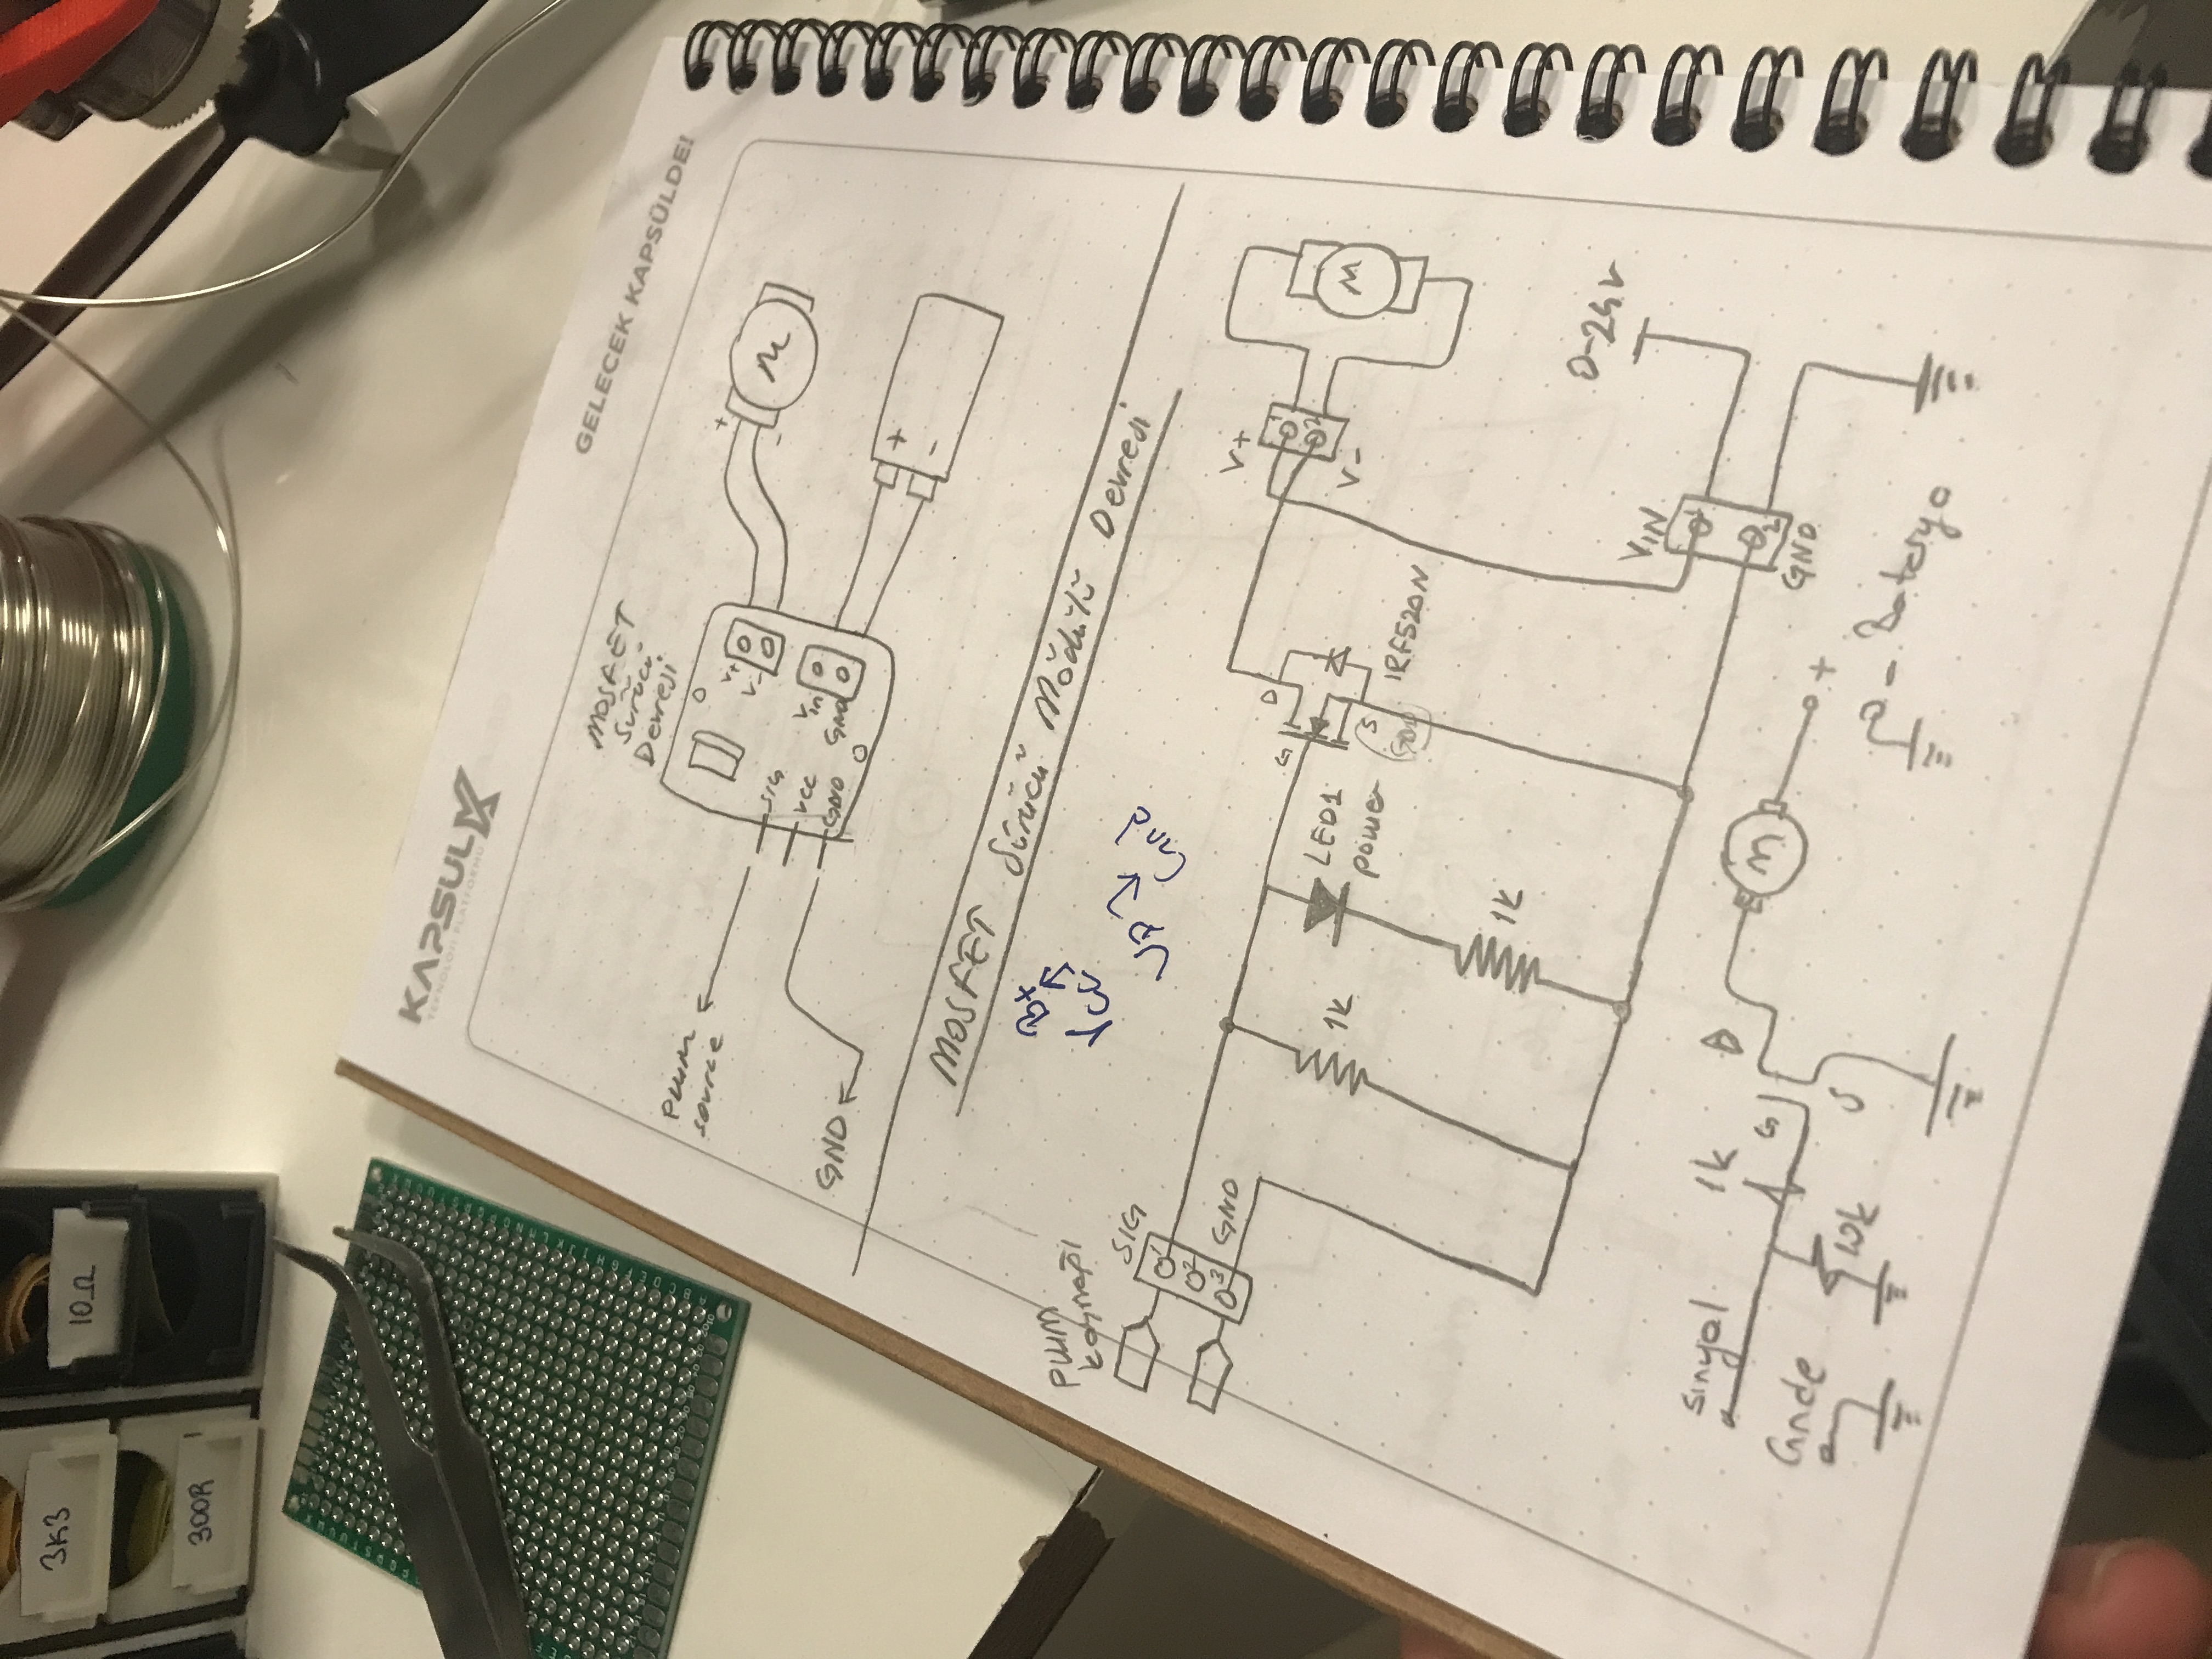 3K3
10Ω
300R
KAPSUL
TEKNOLOJİ PLATFORMU
GELECEK KAPSÜLDE!
MOSFET
Sürücü
Devresi
PWM
source
SIG
VCC
GND
V+
V-
Vin
GND
+
-
M
+
-
GND
MOSFET Sürücü Modülü Devresi
B+
VCC
Gnd
PWM
kaynağı
SIG
1
2
3
GND
1K
LED1
power
1K
G
D
S
GND
IRF520N
V+
1
2
V-
M
0-24V
VIN
1
2
GND
sinyal
1k
G
D
S
M
+
- Batarya
Gnde
10k